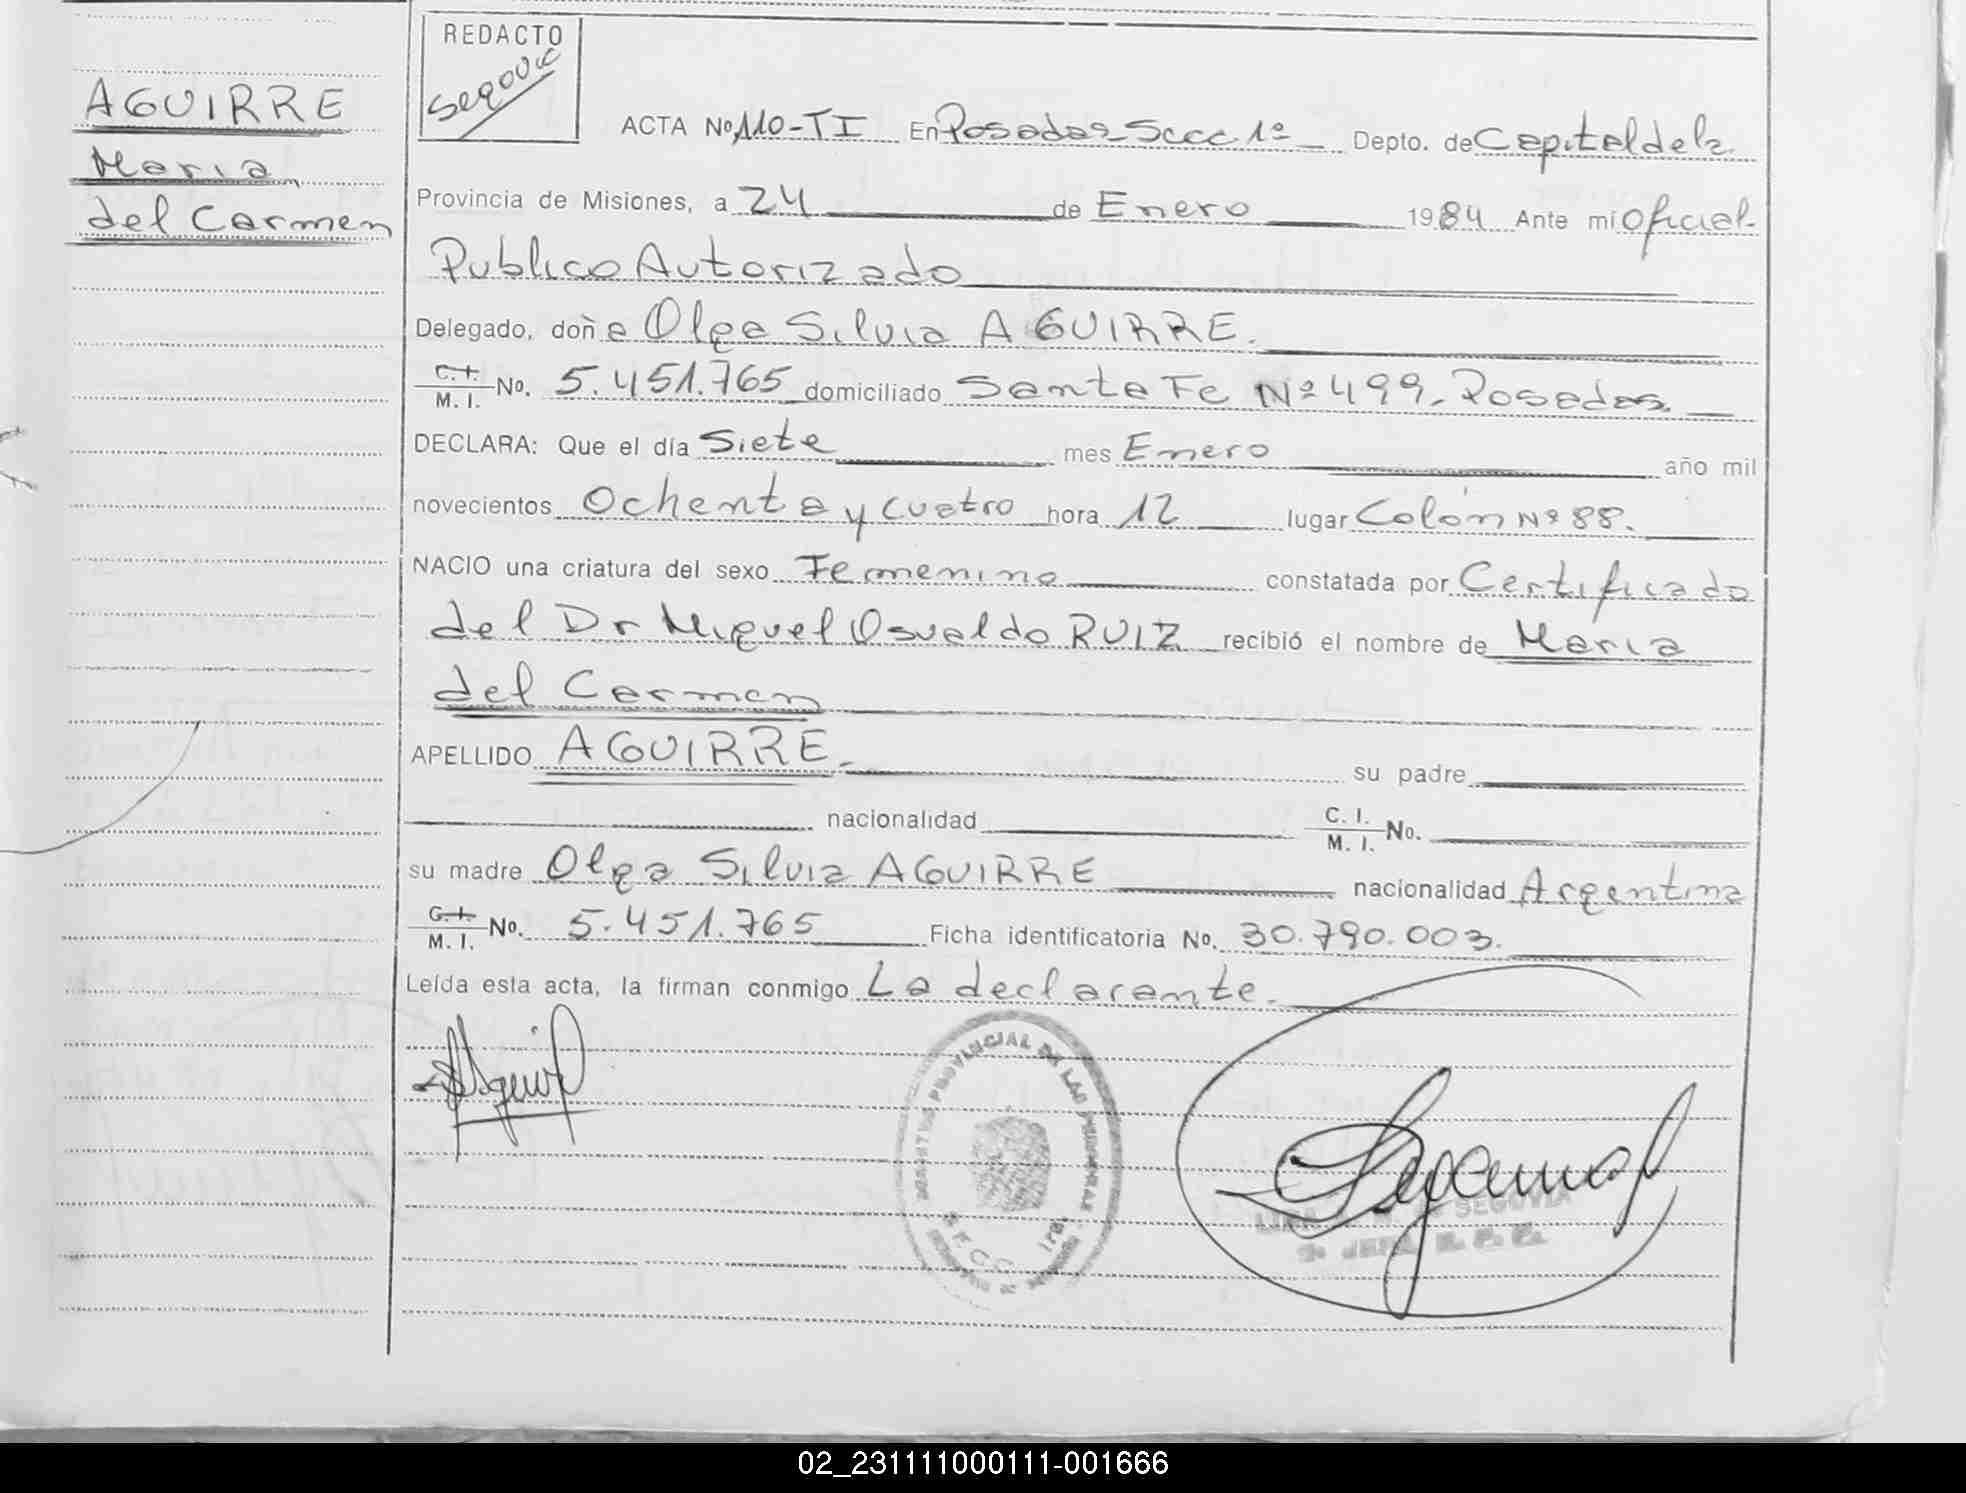 AGUIRRE
Maria
del Carmen
REDACTO
Segovia
ACTA No 110-TI En Posadas Secc 1º Depto. de Capital de la
Provincia de Misiones, a 24 de Enero 1984 Ante mi Oficial
Publico Autorizado
Delegado, doña Olga Silvia AGUIRRE.
C.I. M.I. No. 5.451.765 domiciliado Santa Fe Nº 499. Posadas
DECLARA: Que el día Siete mes Enero año mil
novecientos Ochenta y cuatro hora 12 lugar Colón Nº 88.
NACIO una criatura del sexo Femenino constatada por Certificado
del Dr Miguel Osvaldo RUIZ recibió el nombre de Maria
del Carmen
APELLIDO AGUIRRE. su padre
nacionalidad C.I. M.I. No.
su madre Olga Silvia AGUIRRE nacionalidad Argentina
C.I. M.I. No. 5.451.765 Ficha identificatoria No. 30.790.003.
Leída esta acta, la firman conmigo La declarante.
PROVINCIAL DE LAS PERSONAS
SEGOVIA
02_231111000111-001666